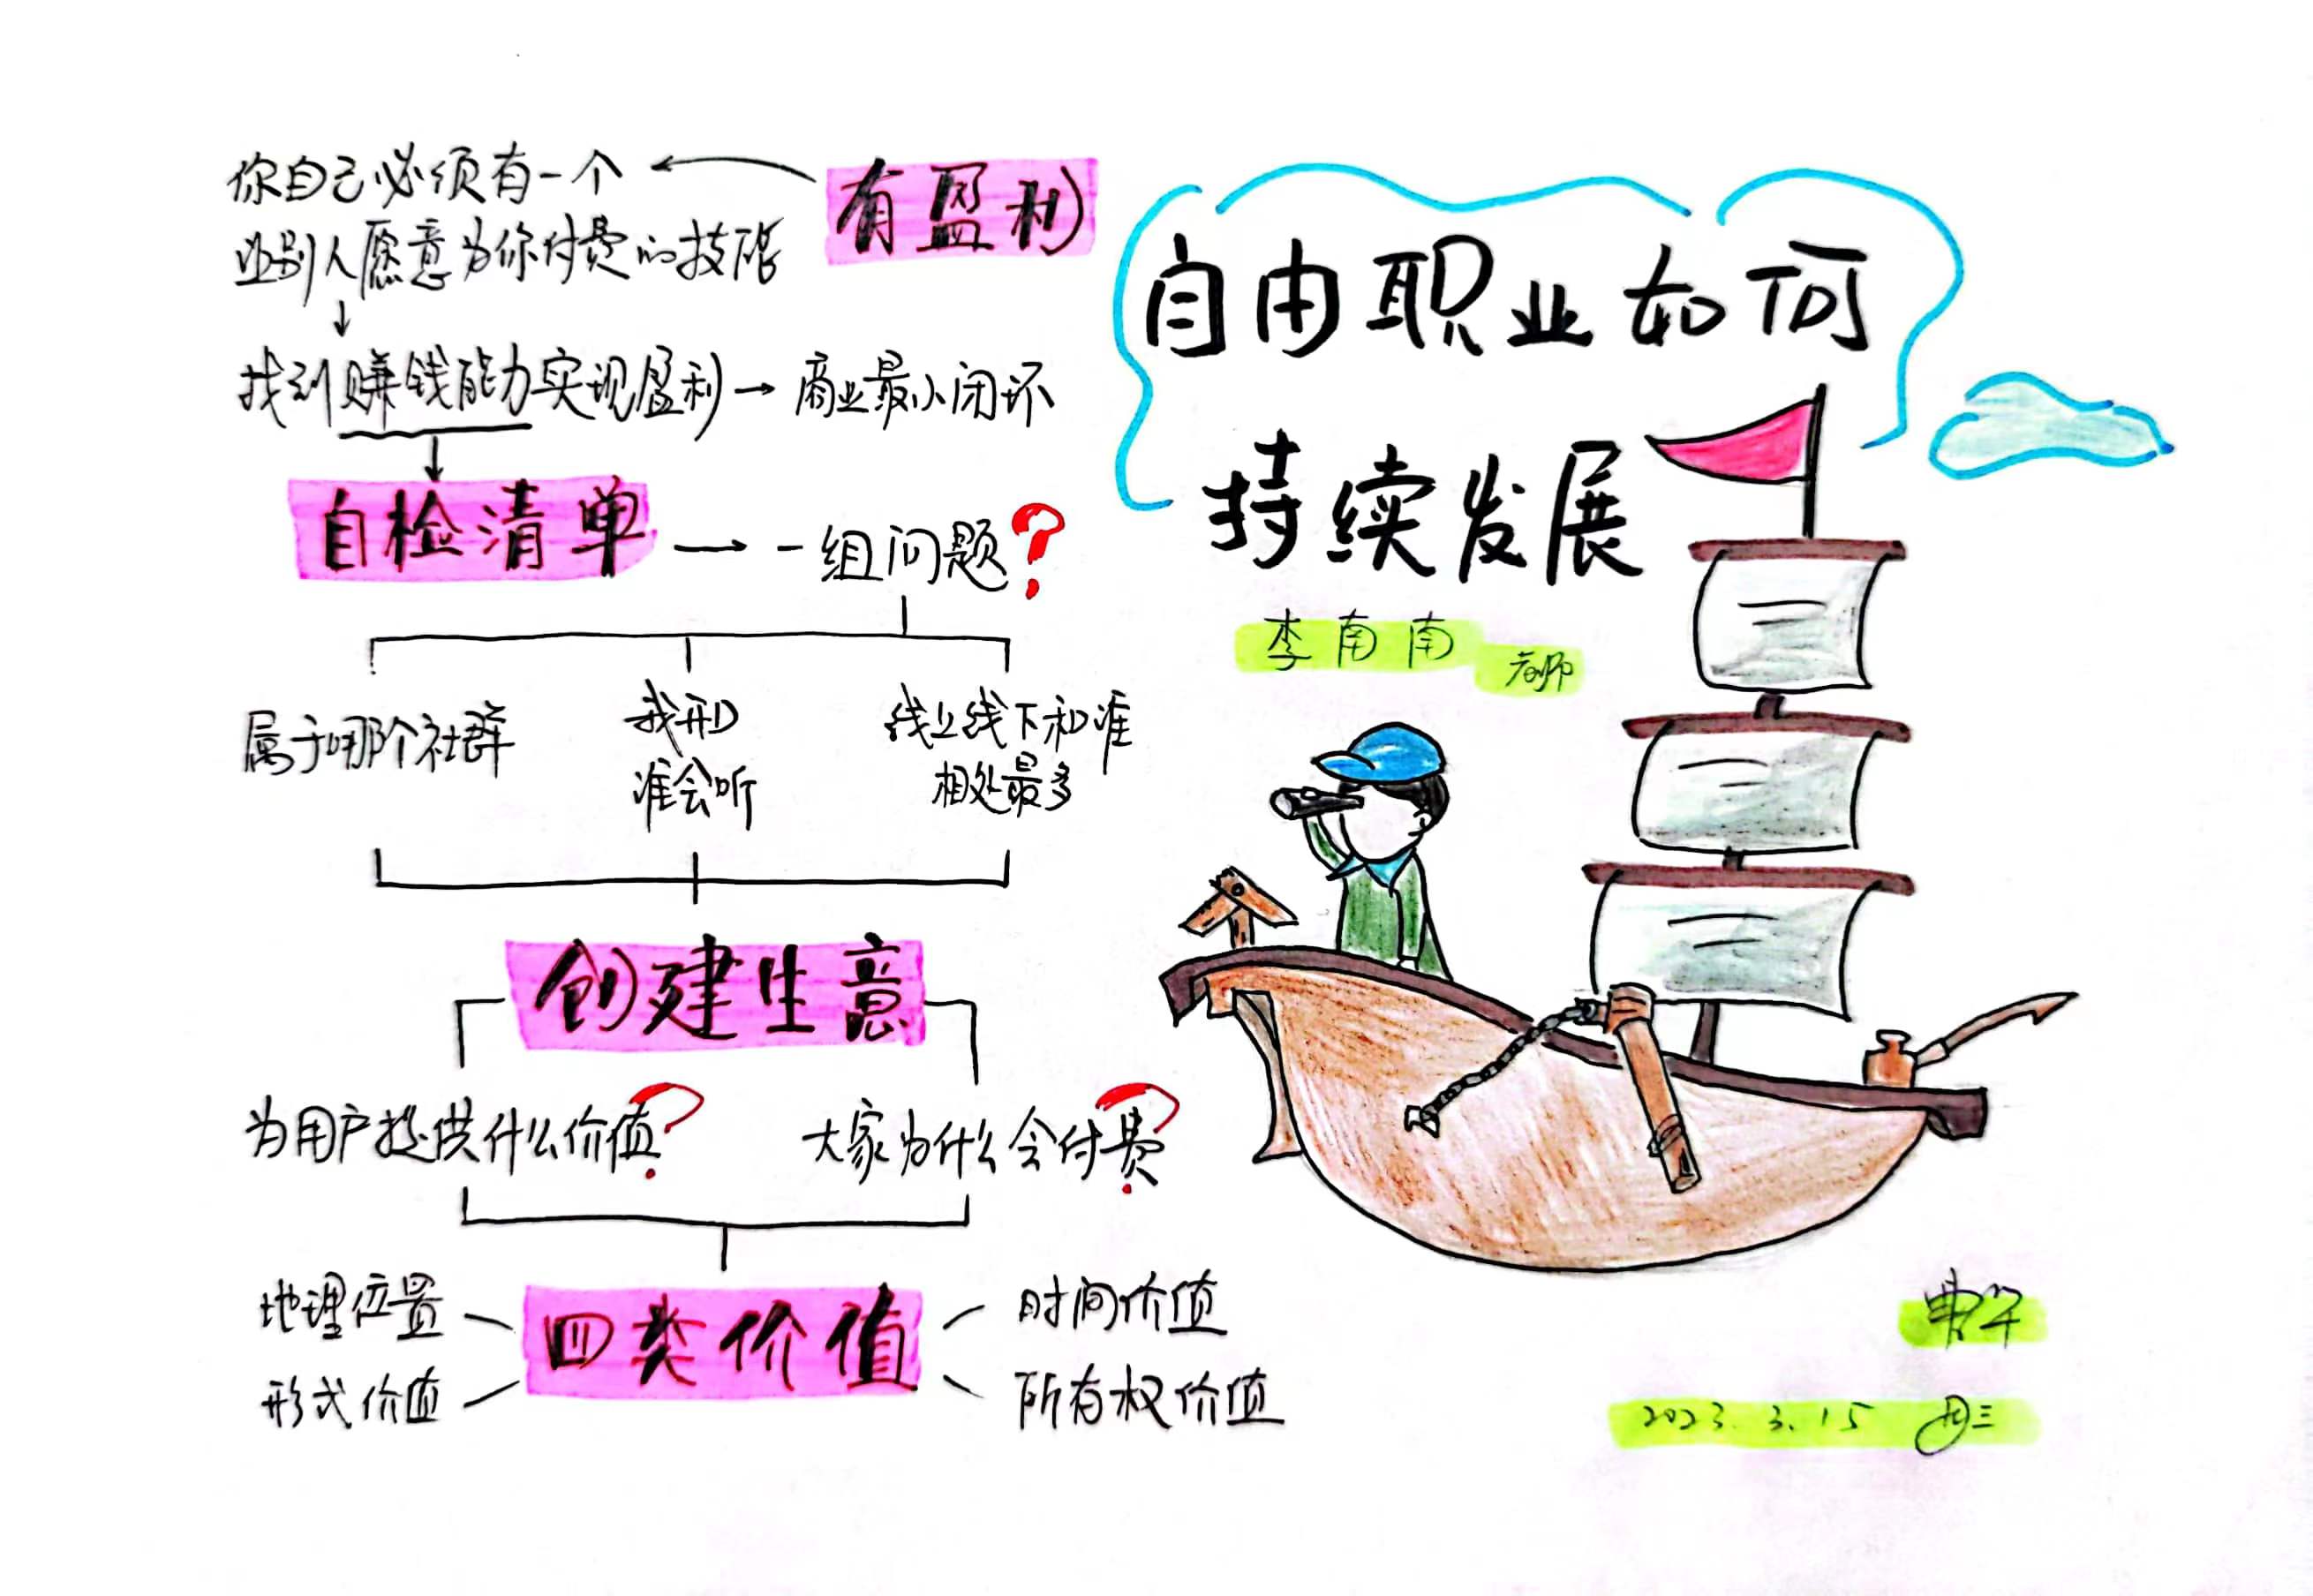 自由职业如何
持续发展
李南南 老师
有盈利
你自己必须有一个
让别人愿意为你付费的技能
找到赚钱能力实现盈利→商业最小闭环
自检清单→一组问题?
属于哪个社群
我形
谁会听
线上线下和谁
相处最多
创建生意
为用户提供什么价值?
大家为什么会付费?
四类价值
地理位置
形式价值
时间价值
所有权价值
2023.3.15 周三